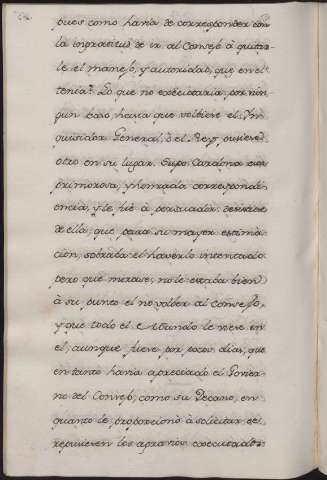 pues como havia de corresponder con
la ingratitud de ir al Consejo à quitar
le el manejo, y autoridad, que en el
tenia? Lo que no executaria por nin
gun caso, hasta que volviese el In
quisidor General, ò el Rey pusiese
otro en su lugar. Supo Cardona esta
primorosa, y honrada correspondi
encia, y le fuè à persuadir desistiese
de ella, que para su mayor estima
cion, sobraba el haverlo intentado
pero que mirase, no le estaba bien
à su punto el no volber al Consejo,
y que todo el Mundo le viese en
el, aunque fuese por pocos dias, que
en tanto havia apreciado el Govier
no del Consejo, como su Decano, en
quanto le proporcionò à solicitar se
repusiesen los agravios executados